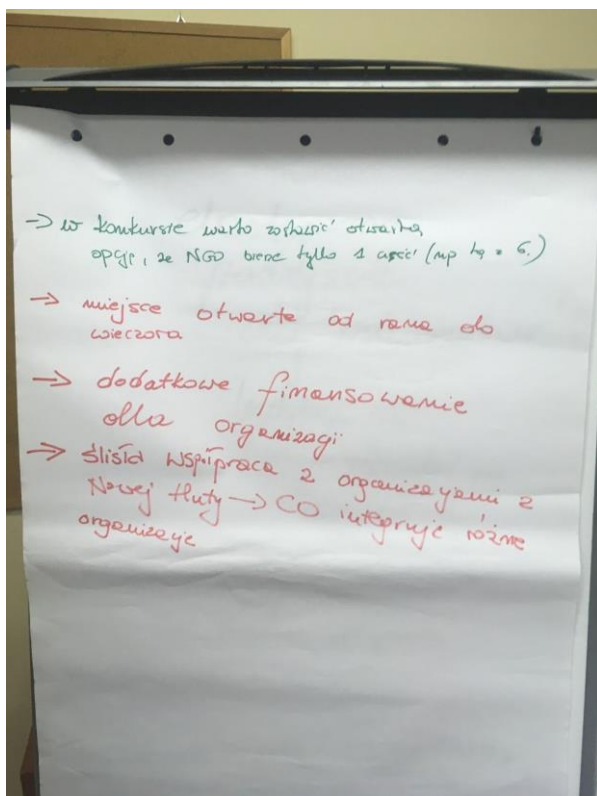 → w konkursie warto zostawić otwartą
opcję, że NGO bierze tylko 1 część (np
→ miejsce otwarte od rana do
wieczora
→ dodatkowe finansowanie
dla organizacji
→ ślisła współpraca z organizacjami z
Nowej Huty → CO integruje różne
organizacje